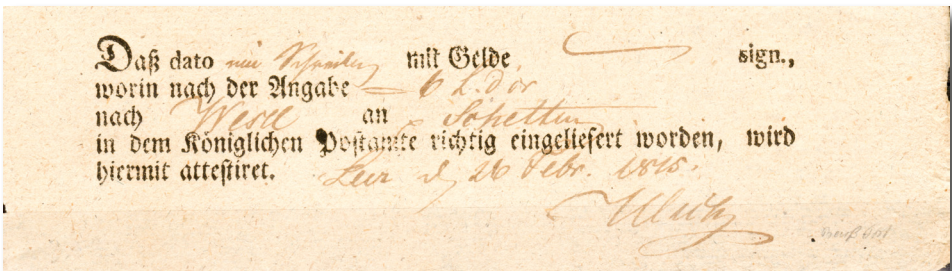 Daß dato ein Schreiben mit Gelde sign.,
worin nach der Angabe = 6 L.d'or
nach Wesel an
in dem Königlichen Postamte richtig eingeliefert worden, wird
hiermit attestiret. Leer d 26 Febr. 1815.